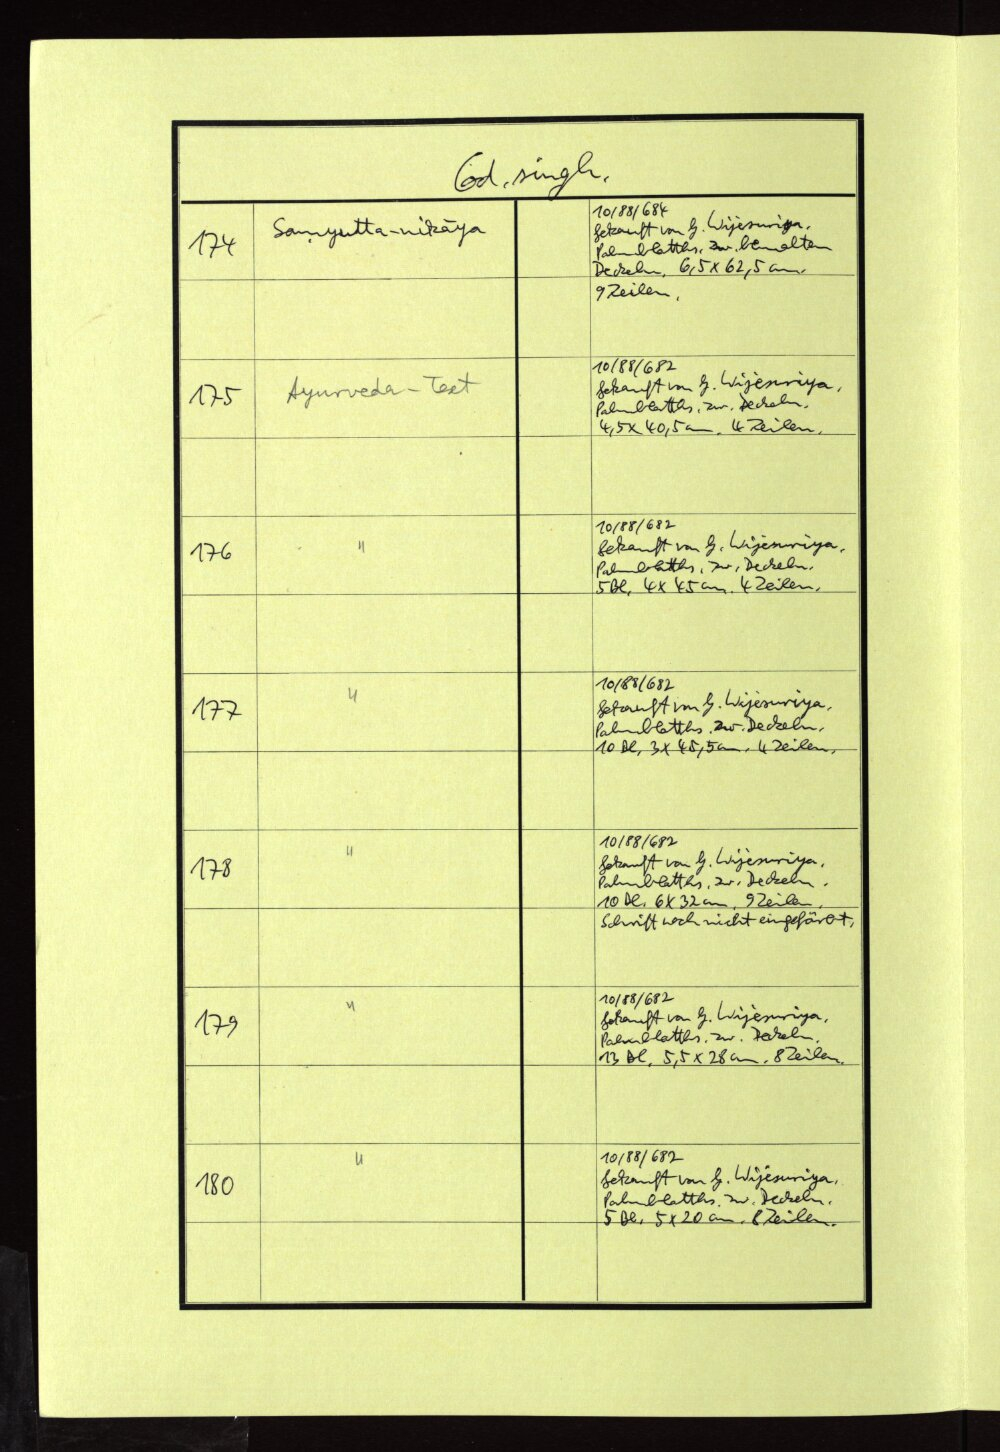 Cod. singh.
174
Saṃyutta-nikāya
10/88/684
Gekauft von G. Wijesuriya.
Palmblatths. zw. bemalten
Deckeln. 6,5 x 62,5 cm.
9 Zeilen.
175
Ayurveda-Text
10/88/682
Gekauft von G. Wijesuriya.
Palmblatths. zw. Deckeln.
4,5 x 40,5 cm. 4 Zeilen.
176
"
10/88/682
Gekauft von G. Wijesuriya.
Palmblatths. zw. Deckeln.
5 Bl. 4 x 45 cm. 4 Zeilen.
177
"
10/88/682
Gekauft von G. Wijesuriya.
Palmblatths. zw. Deckeln.
10 Bl. 3 x 45,5 cm. 4 Zeilen.
178
"
10/88/682
Gekauft von G. Wijesuriya.
Palmblatths. zw. Deckeln.
10 Bl. 6 x 32 cm. 9 Zeilen.
Schrift noch nicht eingefärbt.
179
"
10/88/682
Gekauft von G. Wijesuriya.
Palmblatths. zw. Deckeln.
13 Bl. 5,5 x 28 cm. 8 Zeilen.
180
"
10/88/682
Gekauft von G. Wijesuriya.
Palmblatths. zw. Deckeln.
5 Bl. 5 x 20 cm. 8 Zeilen.